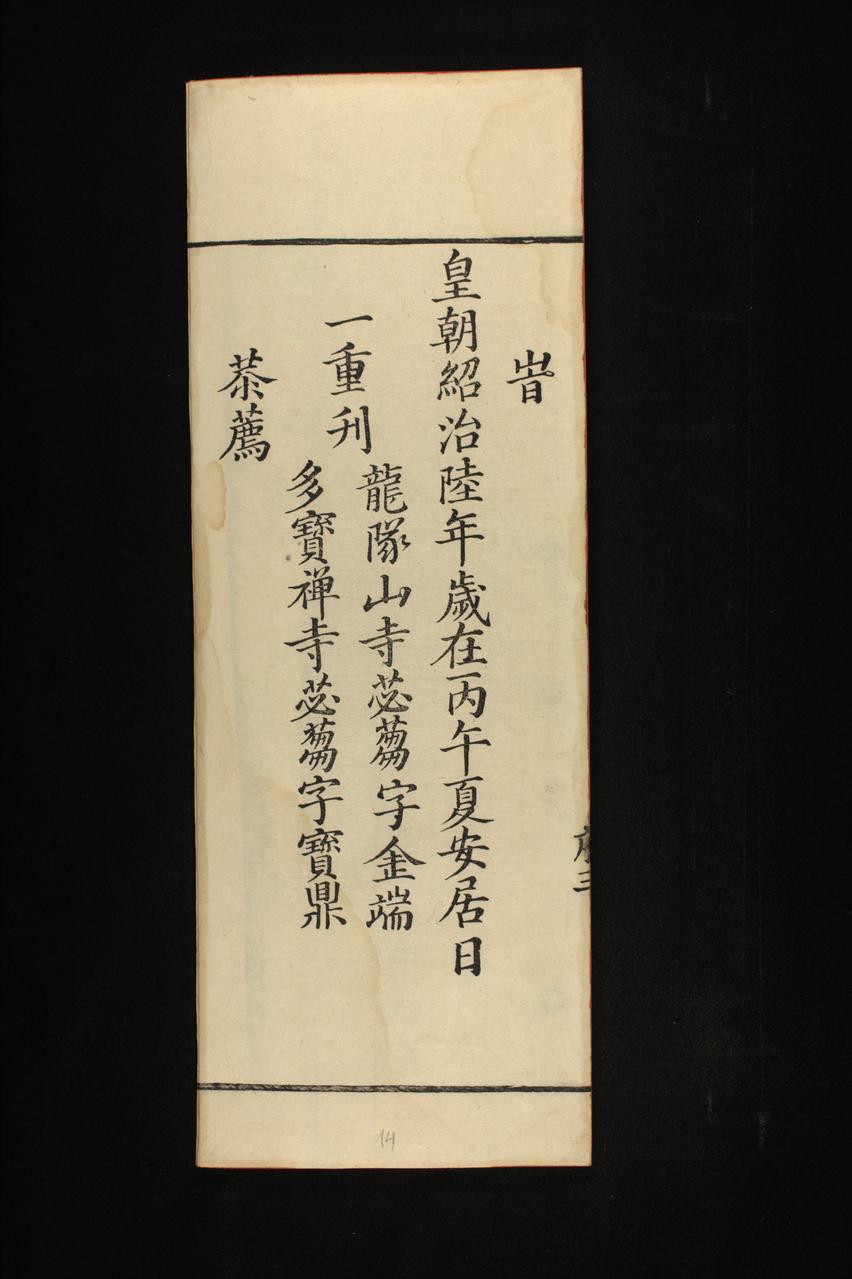 旹
皇朝紹治陸年歲在丙午夏安居日
一重刋
龍隊山寺苾蒭字金端
多寶禅寺苾蒭字寶鼎
㳟薦
三
14